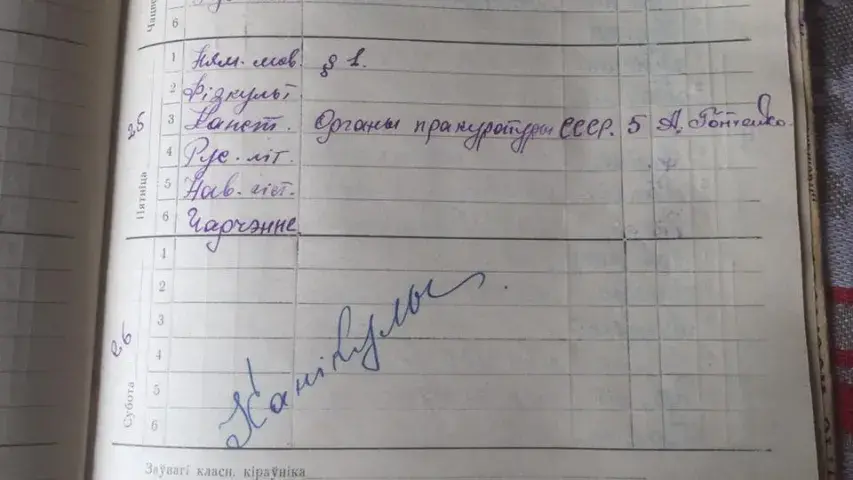 6
1 Ням. мов. § 1.
2 Фізкульт.
3 Канст. Органы пракуратуры СССР. 5
4 Рус. літ.
5 Нав. гіст.
6 Чарчэнне
Пятніца
25
1
2
3
4
5
6
Субота
26
Канікулы.
Заўвагі класн. кіраўніка